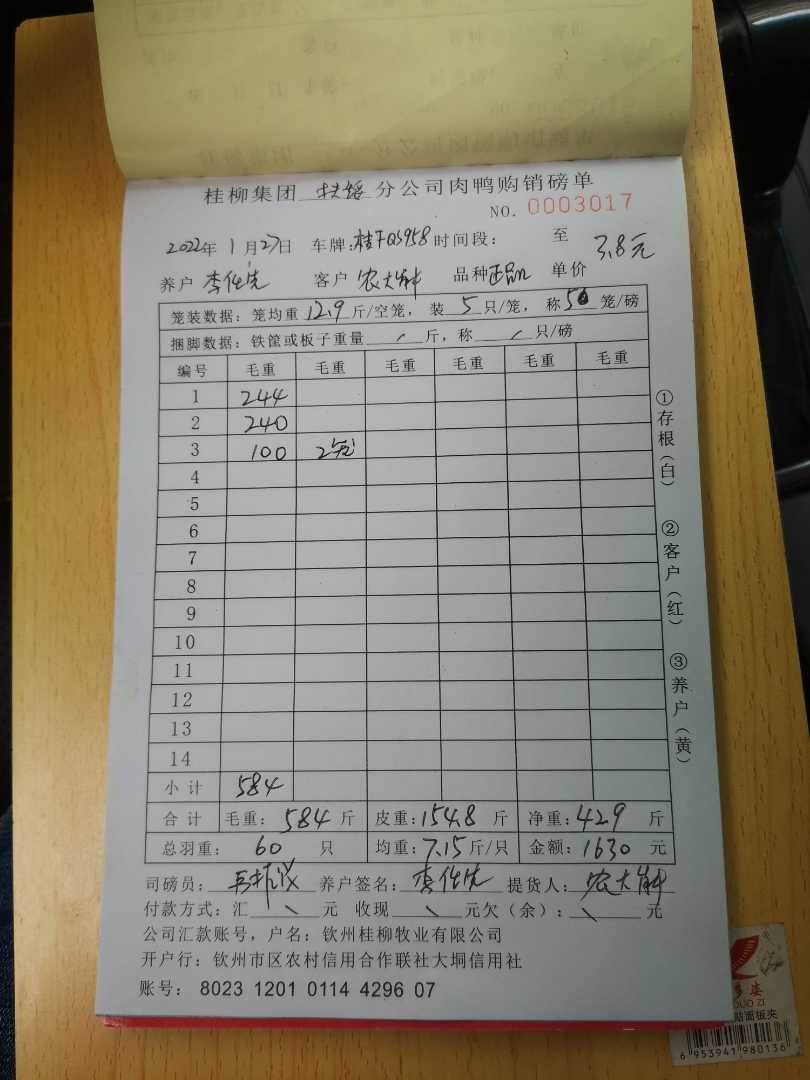 桂柳集团 扶绥 分公司肉鸭购销磅单
NO. 0003017
2022年 1月27日 车牌:桂FQS958 时间段: 至
养户 李仕先 客户 农大 品种 正品 单价 3.8元
笼装数据:笼均重 12.9 斤/空笼,装 5 只/笼,称 5 笼/磅
捆脚数据:铁筐或板子重量 / 斤,称 / 只/磅
编号 毛重 毛重 毛重 毛重 毛重 毛重
1 244
2 240
3 100 2笼
4
5
6
7
8
9
10
11
12
13
14
小计 584
合计 毛重:584 斤 皮重:154.8 斤 净重:429 斤
总羽重: 60 只 均重:7.15斤/只 金额:1630 元
司磅员: 养户签名:李仕先 提货人:农大
付款方式:汇 \ 元 收现 \ 元欠(余):\ 元
公司汇款账号,户名:钦州桂柳牧业有限公司
开户行:钦州市区农村信用合作联社大垌信用社
账号: 8023 1201 0114 4296 07
①存根(白)
②客户(红)
③养户(黄)
多姿
DUO ZI
贴面板夹
6 953941 980136